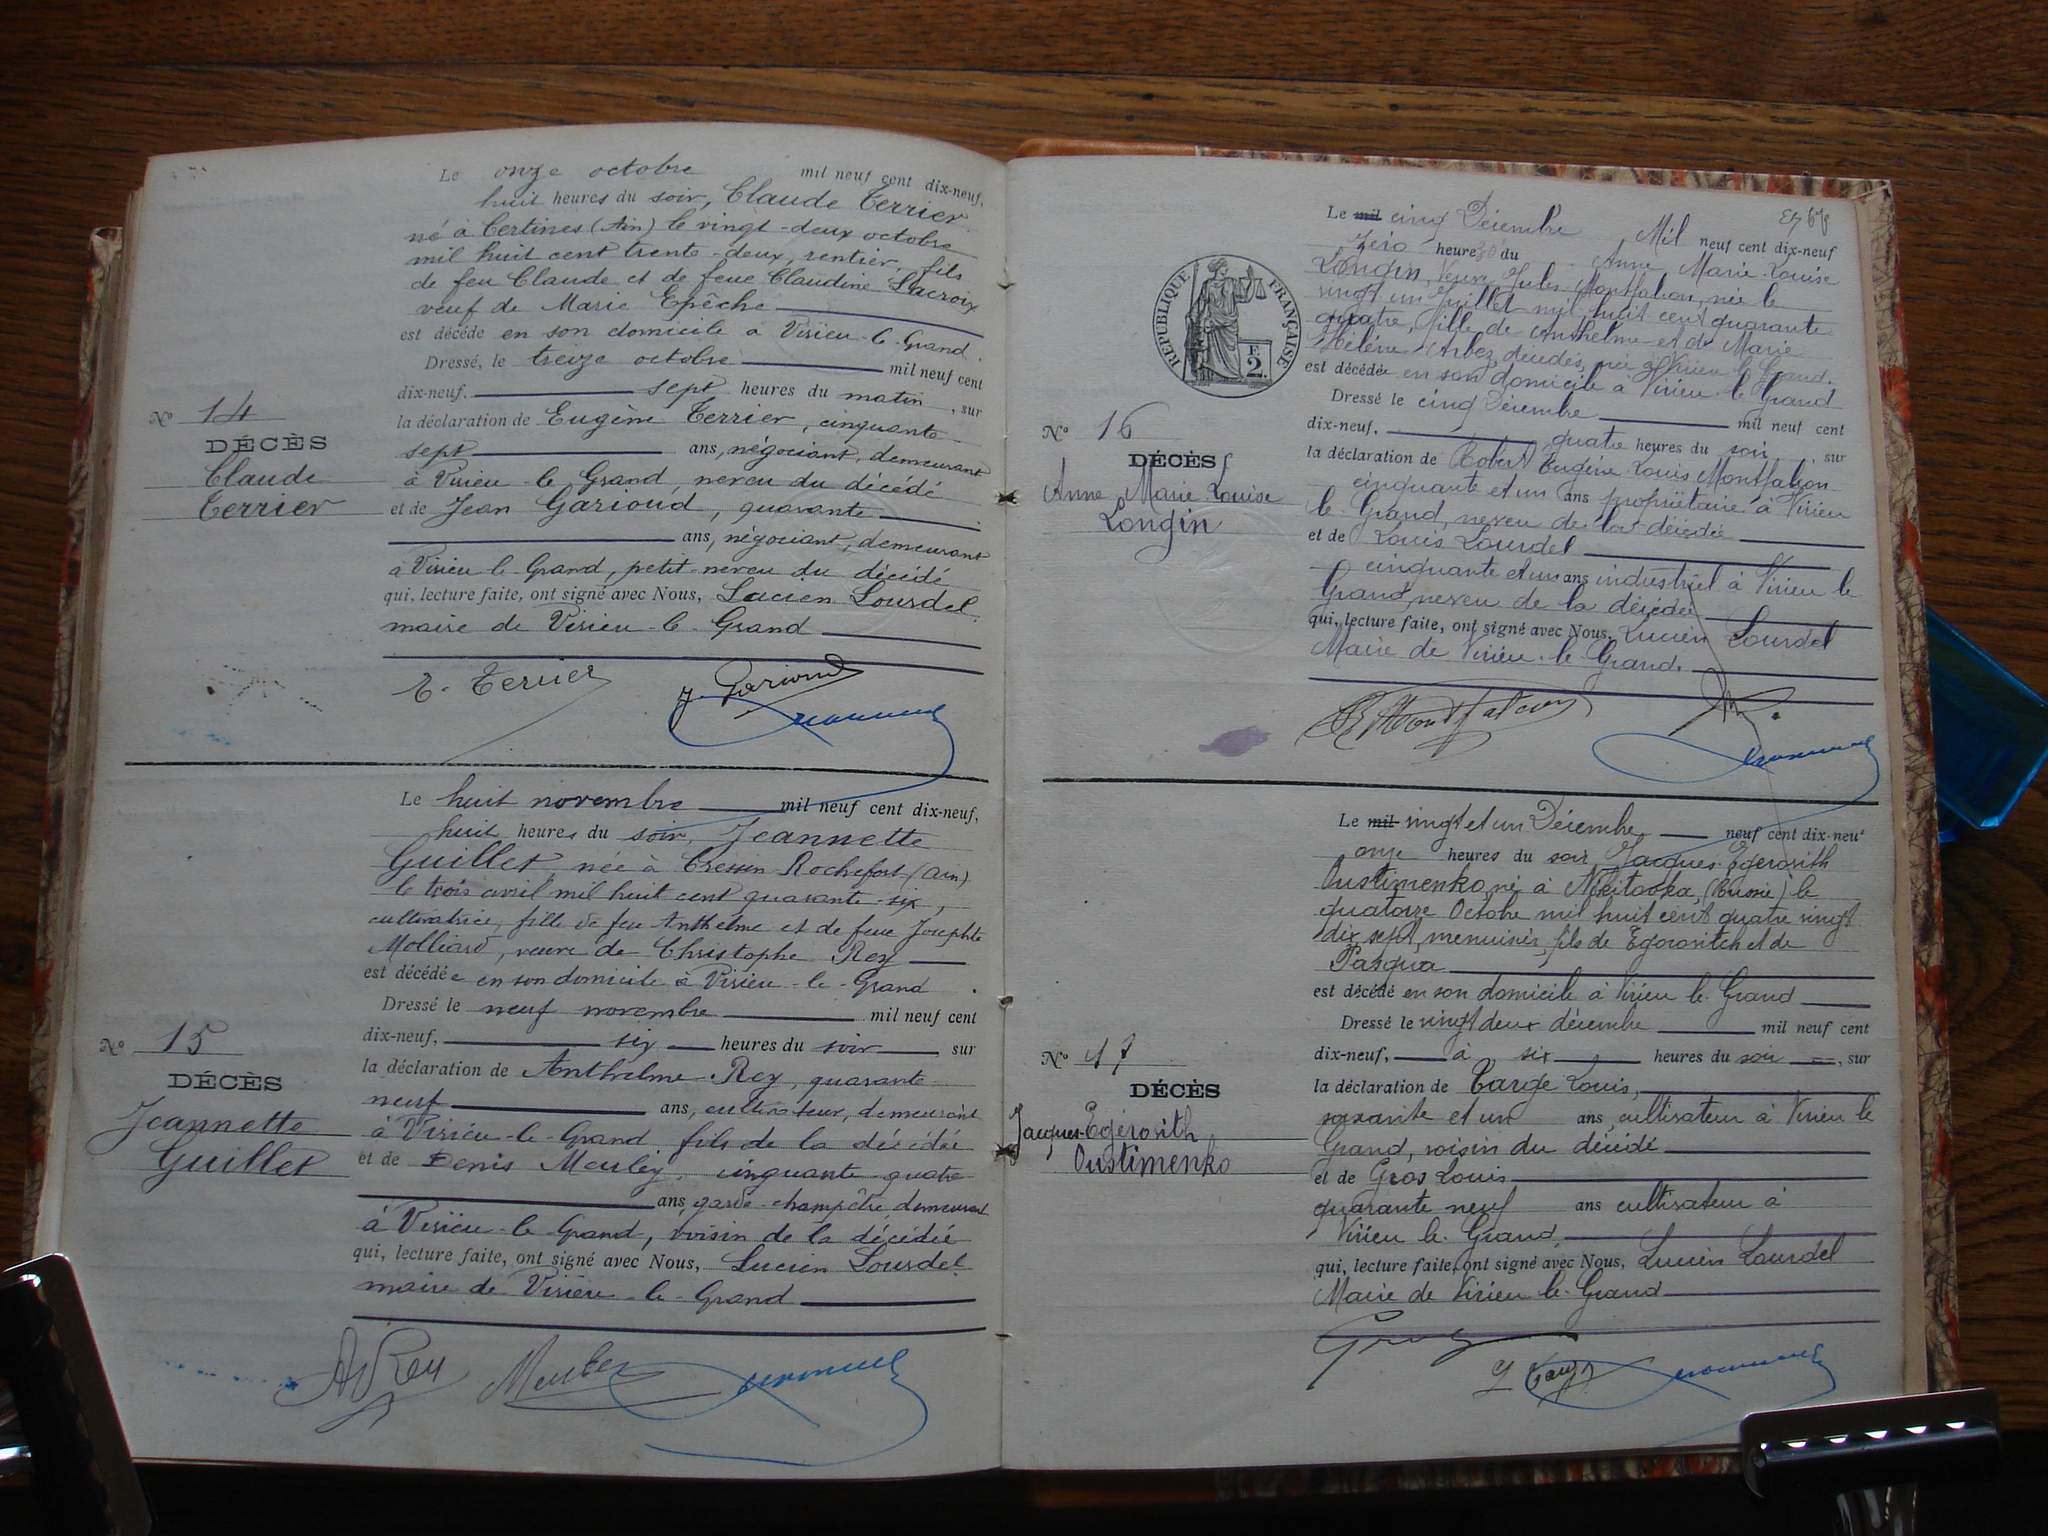 Le onze octobre mil neuf cent dix-neuf,
huit heures du soir, Claude Terrier
né à Certines (Ain) le vingt-deux octobre
mil huit cent trente-deux, rentier, fils
de feu Claude et de feue Claudine Lacroix
veuf de Marie Epêche
est décédé en son domicile à Virieu-le-Grand.
Dressé, le treize octobre mil neuf cent
dix-neuf, sept heures du matin, sur
la déclaration de Eugène Terrier, cinquante
sept ans, négociant, demeurant
à Virieu-le-Grand, neveu du décédé
et de Jean Garioud, quarante
ans, négociant, demeurant
à Virieu-le-Grand, petit-neveu du décédé
qui, lecture faite, ont signé avec Nous, Lucien Lourdel
maire de Virieu-le-Grand
No 14
DÉCÈS
Claude
Terrier
E. Terrier J. Garioud
Le huit novembre mil neuf cent dix-neuf,
huit heures du soir, Jeannette
Guillet, née à Cressin Rochefort (Ain)
le trois avril mil huit cent quarante-six,
cultivatrice, fille de feu Anthelme et de feue Josephte
Molliard, veuve de Christophe Rey
est décédée en son domicile à Virieu-le-Grand.
Dressé le neuf novembre mil neuf cent
dix-neuf, six heures du soir sur
la déclaration de Anthelme Rey, quarante
neuf ans, cultivateur, demeurant
à Virieu-le-Grand fils de la décédée
et de Denis Meuley, cinquante-quatre
ans garde-champêtre demeurant
à Virieu-le-Grand, voisin de la décédée
qui, lecture faite, ont signé avec Nous, Lucien Lourdel
maire de Virieu-le-Grand
No 15
DÉCÈS
Jeannette
Guillet
A Rey
RÉPUBLIQUE FRANÇAISE
E
2.
Le mil cinq Décembre Mil neuf cent dix-neuf
zéro heure 30 du Anne Marie Louise
Longin, Veuve Jules Montfalcon, née le
vingt un Juillet mil huit cent quarante
quatre, fille de Anthelme et de Marie
Hélène Arbez décédés, née à Virieu le Grand.
est décédée en son domicile à Virieu le Grand
Dressé le cinq Décembre mil neuf cent
dix-neuf, quatre heures du soir, sur
la déclaration de Robert Eugène Louis Montfalcon
cinquante et un ans propriétaire à Virieu
le Grand, neveu de la décédée
et de Louis Lourdel
cinquante et un ans industriel à Virieu le
Grand, neveu de la décédée
qui, lecture faite, ont signé avec Nous, Lucien Lourdel
Maire de Virieu-le-Grand.
No 16
DÉCÈS
Anne Marie Louise
Longin
Le mil vingt et un Décembre neuf cent dix-neuf
onze heures du soir, Jacques Egerovith
Oustimenko, né à Nikitovka, (Russie) le
quatorze Octobre mil huit cent quatre vingt
dix sept, menuisier, fils de Egorovitch et de
Pasqua
est décédé en son domicile à Virieu le Grand
Dressé le vingt deux décembre mil neuf cent
dix-neuf, à six heures du soir, sur
la déclaration de Targe Louis,
soixante et un ans cultivateur à Virieu le
Grand, voisin du décédé
et de Gros Louis
quarante neuf ans cultivateur à
Virieu le Grand,
qui, lecture faite, ont signé avec Nous, Lucien Lourdel
Maire de Virieu le Grand
No 17
DÉCÈS
Jacques-Egérovith
Oustimenko